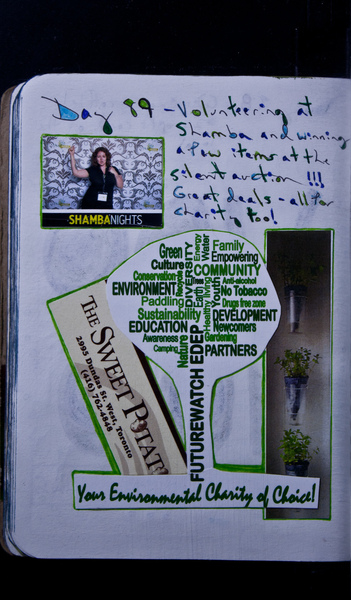 Day 89 - Volunteering at
Shamba and winning
a few items at the
silent auction !!!
Great deals - all for
charity too!
SHAMBANIGHTS
Green
Culture
Conservation
ENVIRONMENT
Paddling
Sustainability
EDUCATION
Awareness
Camping
Nature
DIVERSITY
Energy
Water
Family
Empowering
COMMUNITY
Anti-alcohol
Youth
No Tobacco
Earth
Healthy living
Drugs free zone
DEVELOPMENT
Newcomers
Gardening
PARTNERS
FUTUREWATCH EDEP
THE SWEET POTAT
2995 Dundas St. West, Toronto
(416) 762-4848
Your Environmental Charity of Choice!